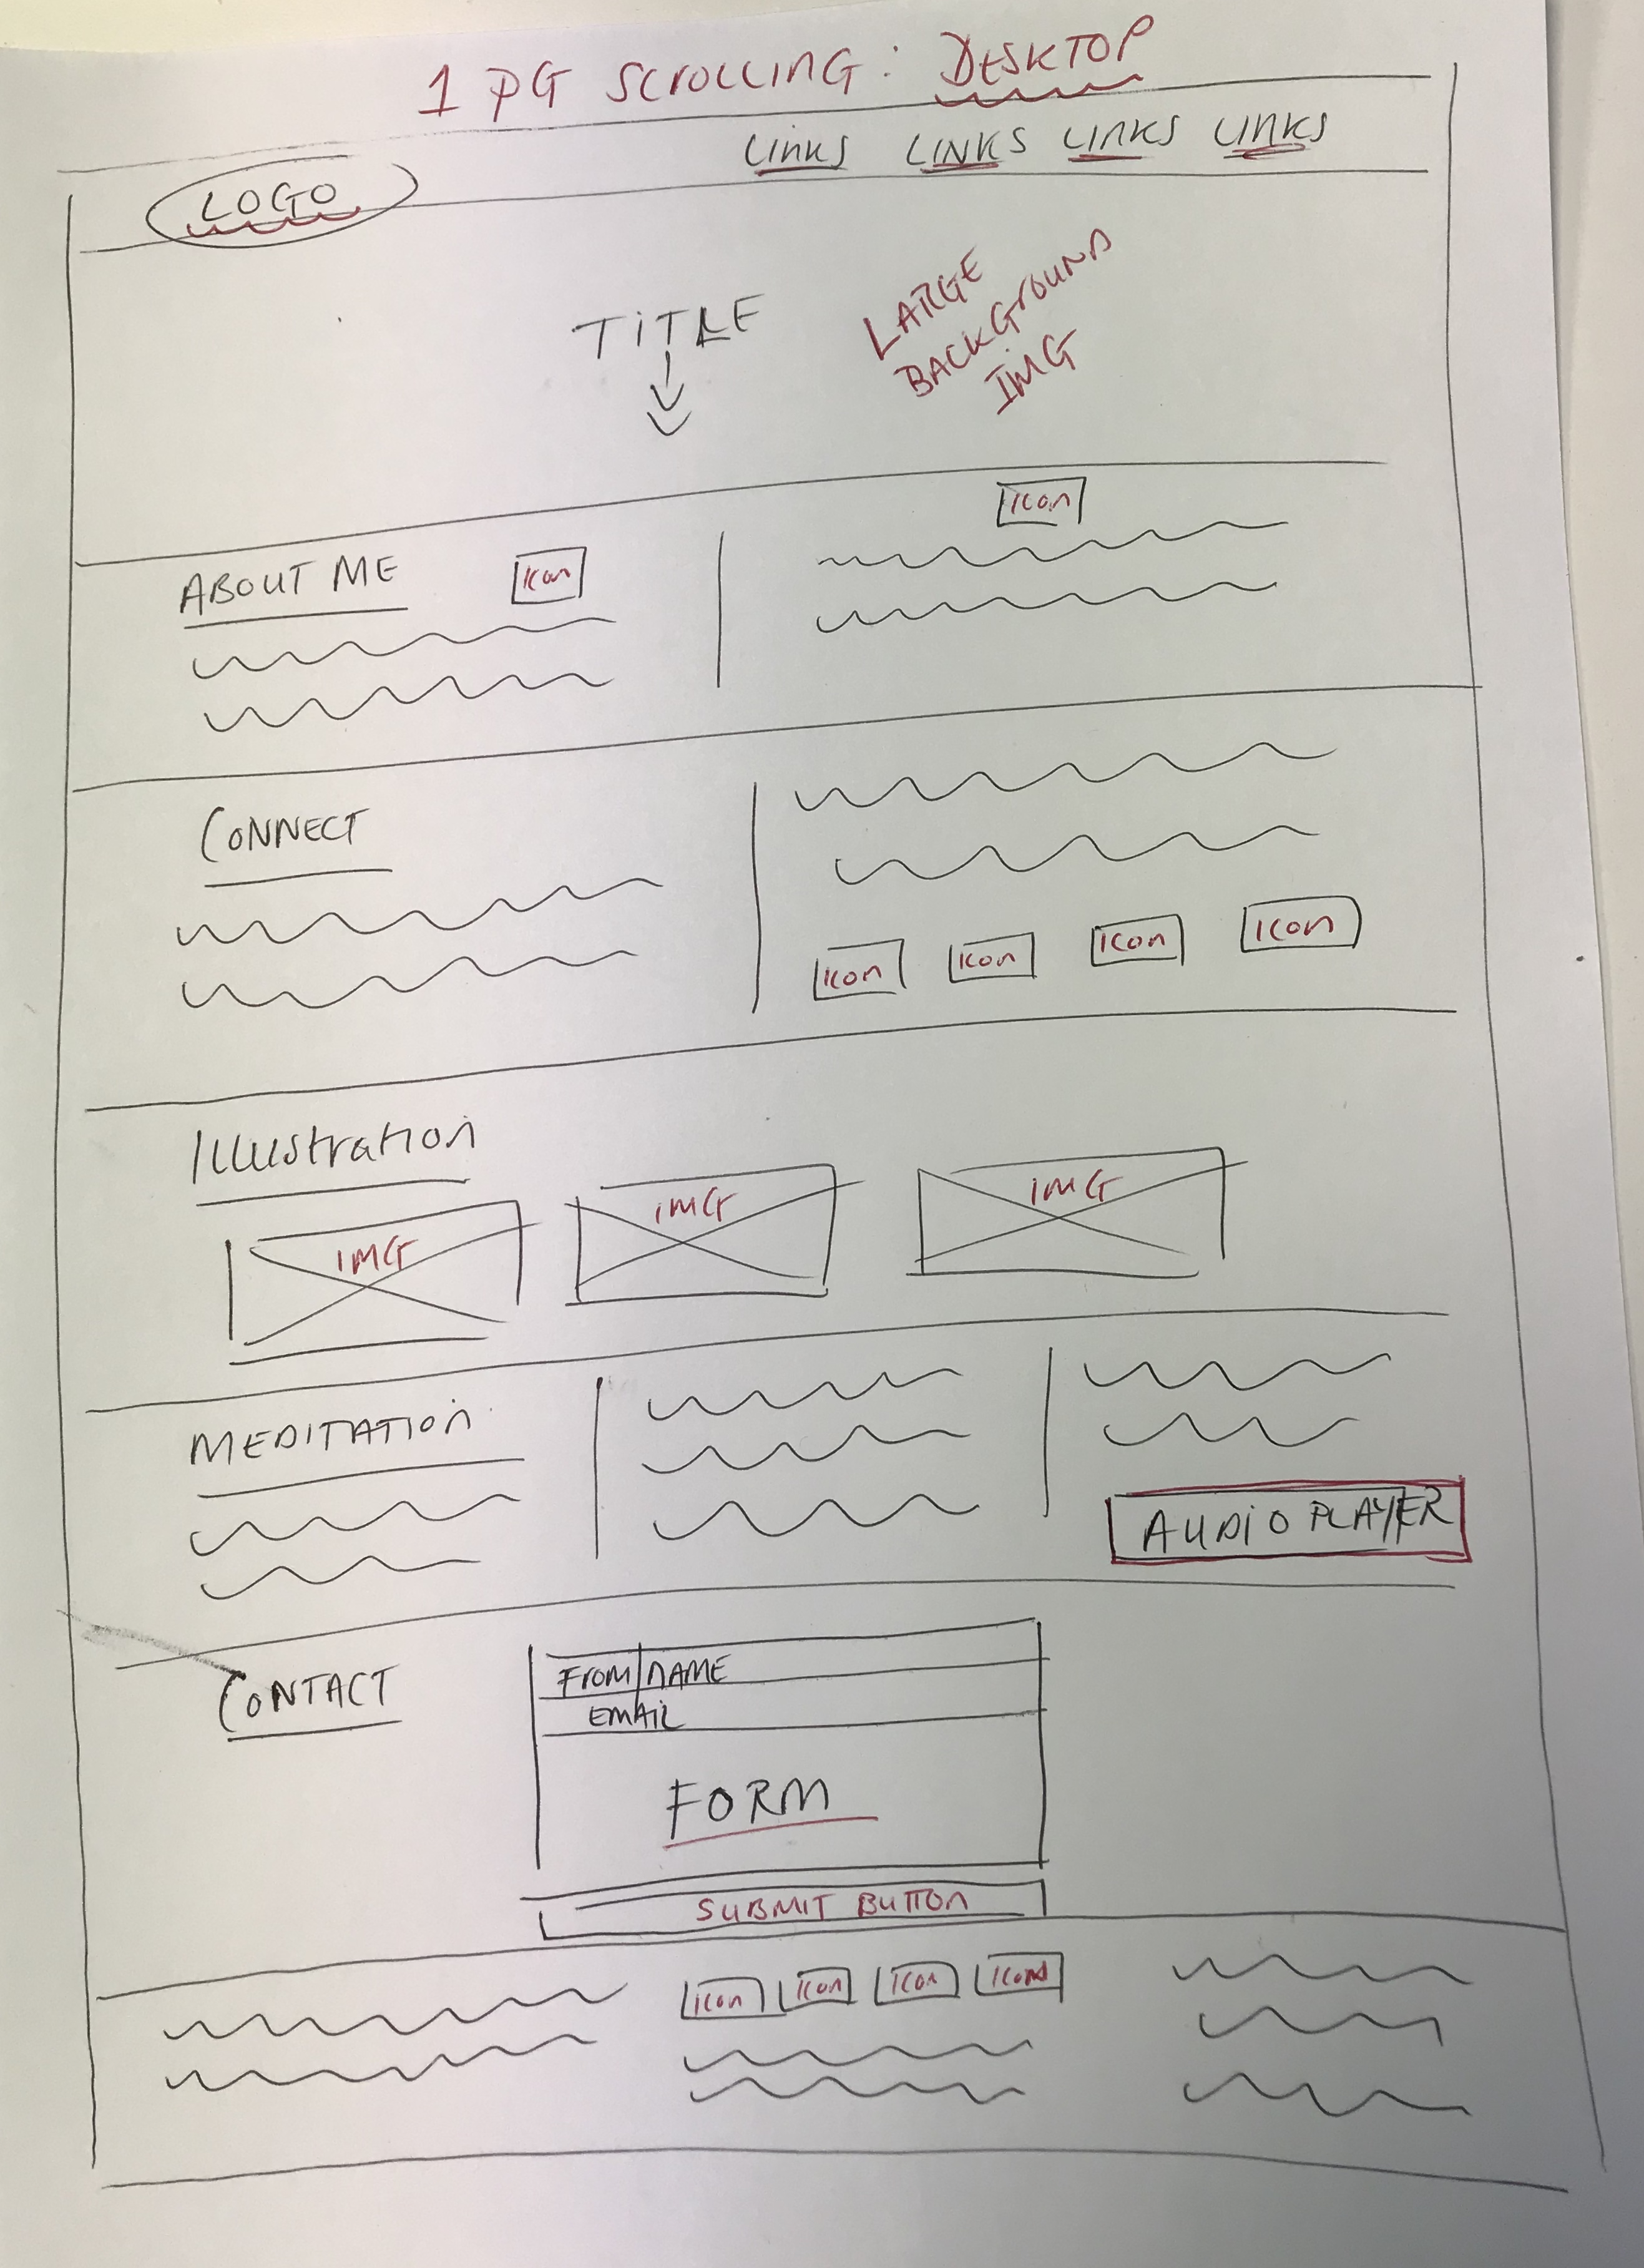 1 PG SCROLLING: DESKTOP
LINKS LINKS LINKS LINKS
LOGO
TITLE
LARGE
BACKGROUND
IMG
ABOUT ME Icon
Icon
CONNECT
Icon Icon Icon Icon
Illustration
IMG IMG IMG
MEDITATION
AUDIO PLAYER
CONTACT
FROM/NAME
EMAIL
FORM
SUBMIT BUTTON
Icon Icon Icon Icon